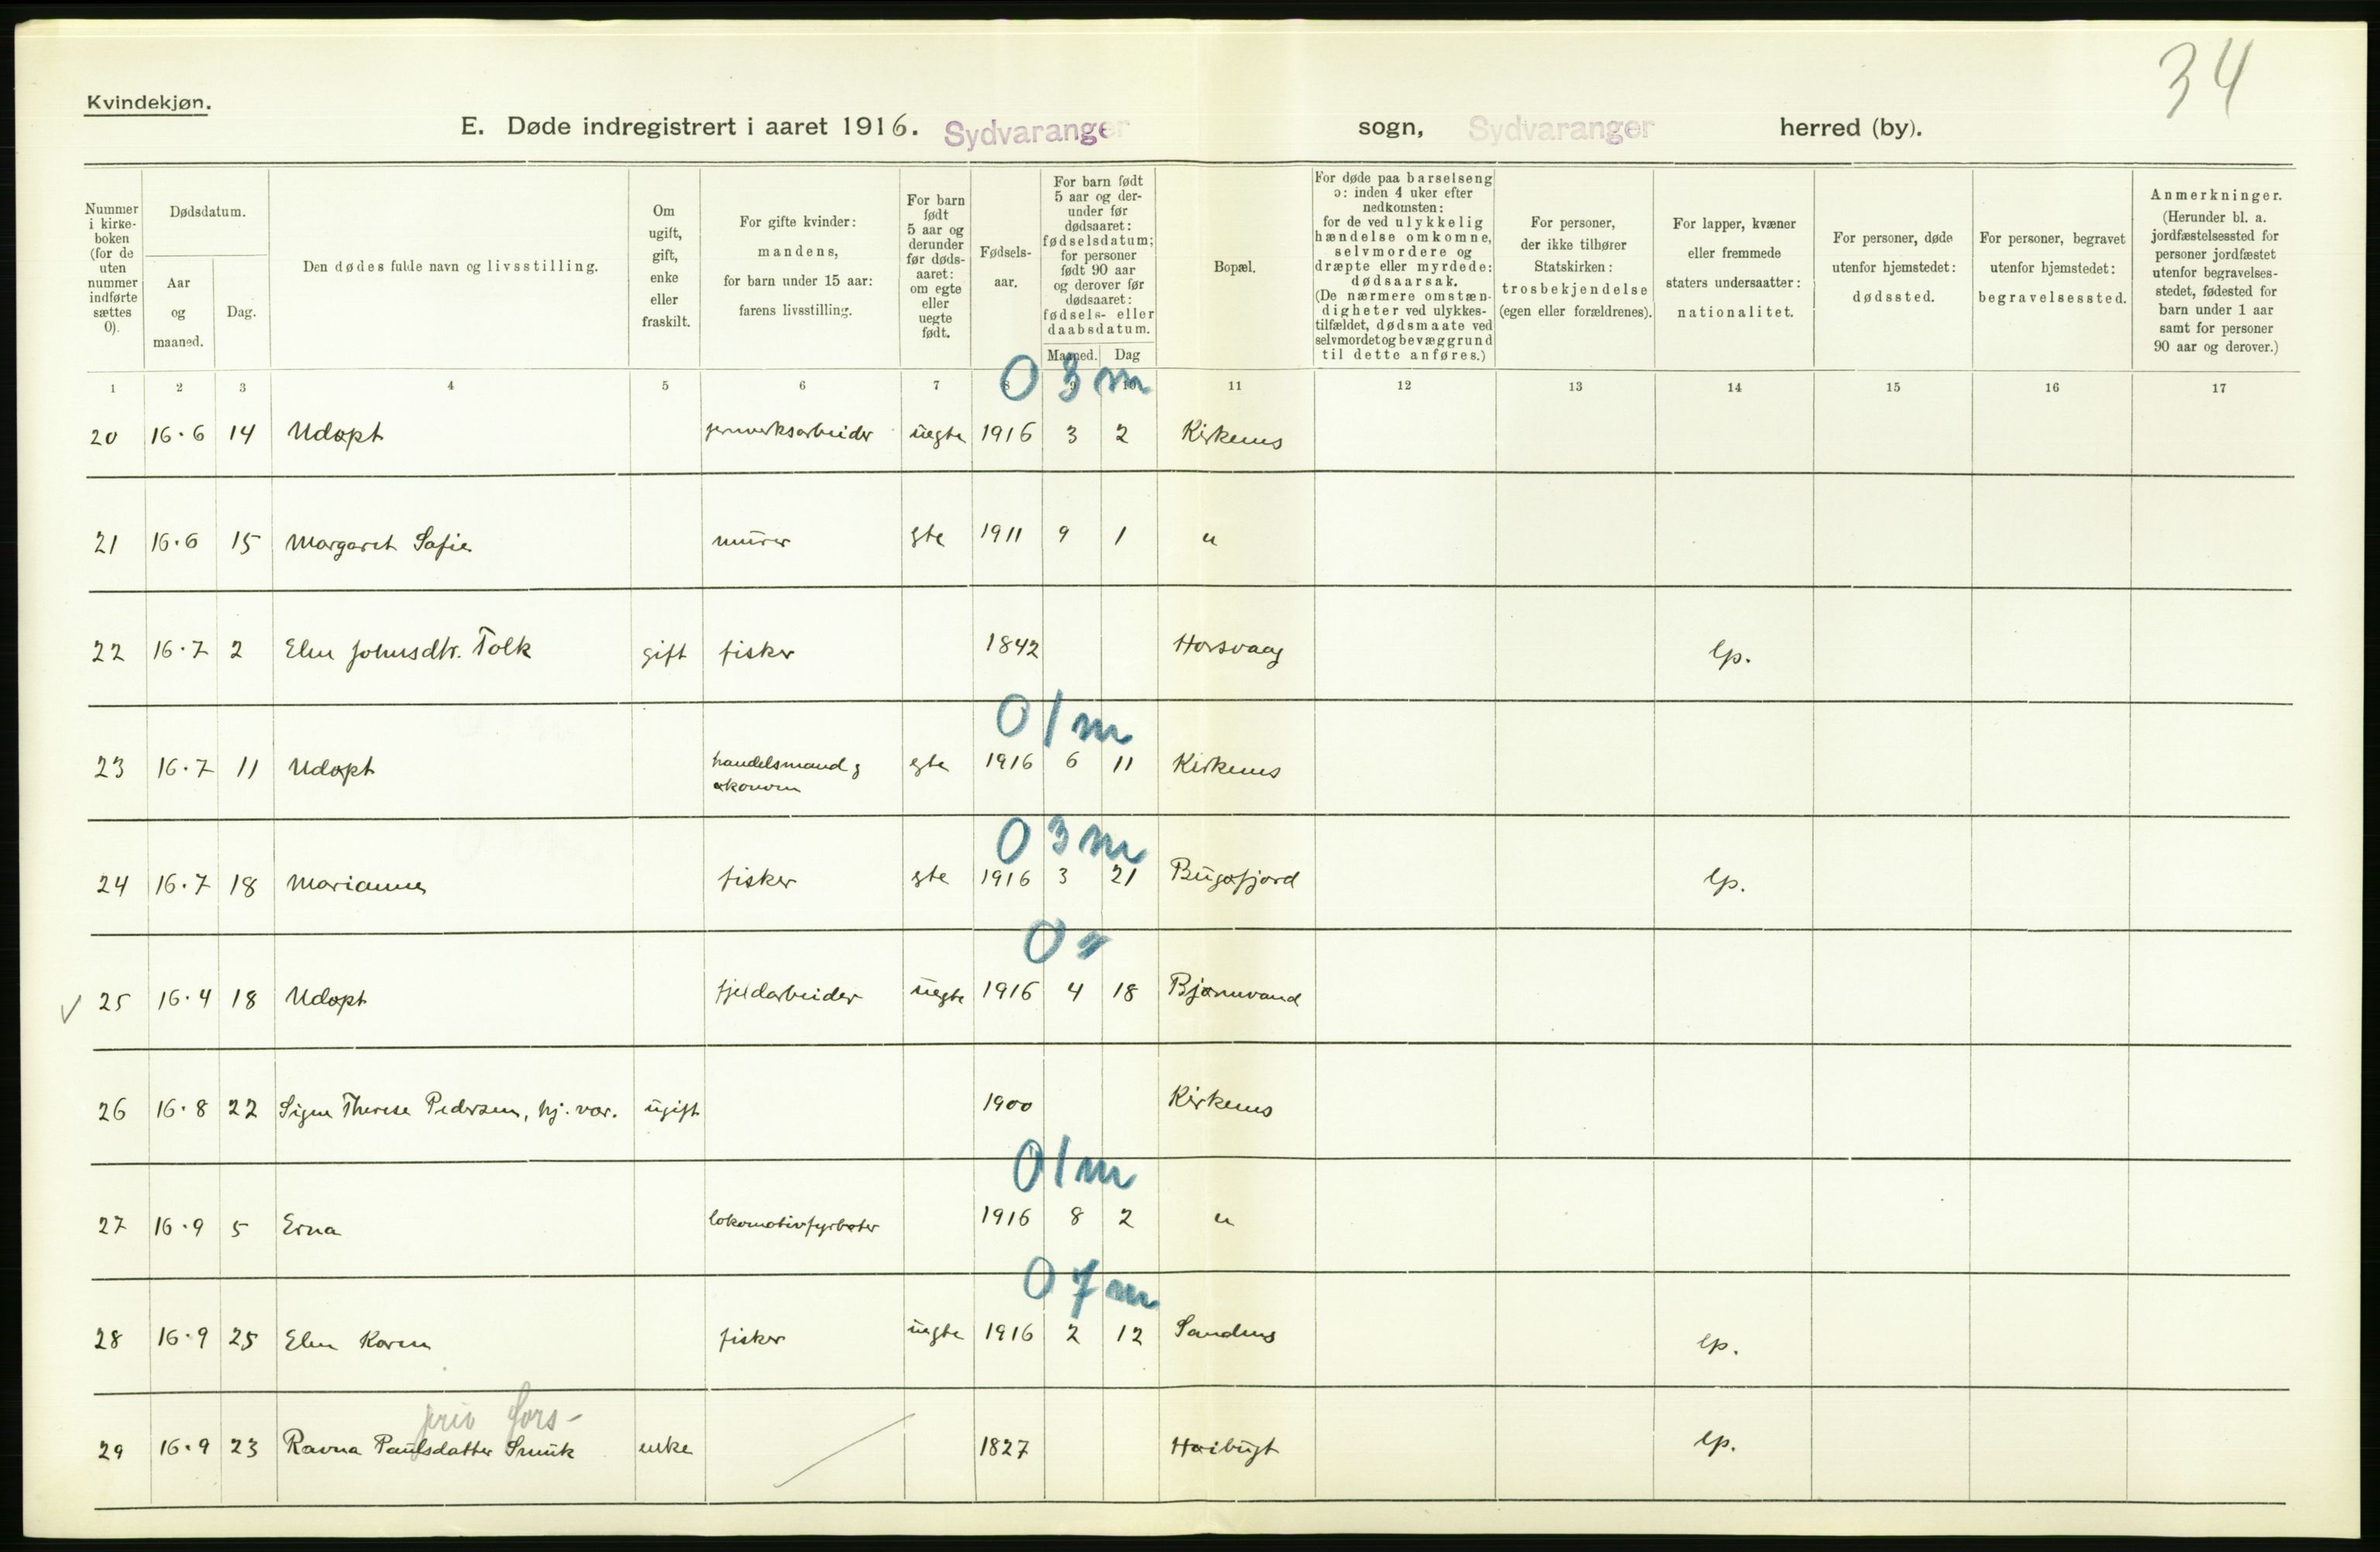 34
Kvindekjøn.
E. Døde indregistrert i aaret 1916. Sydvaranger sogn, Sydvaranger herred (by).
Nummer i kirke- boken (for de uten nummer indførte sættes 0).
Dødsdatum.
Aar og maaned.
Dag.
Den dødes fulde navn og livsstilling.
Om ugift, gift, enke eller fraskilt.
For gifte kvinder: mandens, for barn under 15 aar: farens livsstilling.
For barn født 5 aar og derunder før døds- aaret: om egte eller uegte født.
Fødsels- aar.
For barn født 5 aar og der- under før dødsaaret: fødselsdatum; for personer født 90 aar og derover før dødsaaret: fødsels- eller daabsdatum.
Maaned. Dag
Bopæl.
For døde paa barselseng ɔ: inden 4 uker efter nedkomsten: for de ved ulykkelig hændelse omkomne, selvmordere og dræpte eller myrdede: dødsaarsak. (De nærmere omstæn- digheter ved ulykkes- tilfældet, dødsmaate ved selvmordet og bevæggrund til dette anføres.)
For personer, der ikke tilhører Statskirken: trosbekjendelse (egen eller forældrenes).
For lapper, kvæner eller fremmede staters undersaatter: nationalitet.
For personer, døde utenfor hjemstedet: dødssted.
For personer, begravet utenfor hjemstedet: begravelsessted.
Anmerkninger. (Herunder bl. a. jordfæstelsessted for personer jordfæstet utenfor begravelses- stedet, fødested for barn under 1 aar samt for personer 90 aar og derover.)
1 2 3 4 5 6 7 8 9 10 11 12 13 14 15 16 17
0 3 m
20 16.6 14 Udøpt jernverksarbeider uegte 1916 3 2 Kirkenes
21 16.6 15 Margaret Sofie murer gte 1911 9 1 "
22 16.7 2 Elen Johnsdtr. Tolk gift fisker 1842 Horsvaag lp.
0 1 m
23 16.7 11 Udøpt handelsmand & økonom egte 1916 6 11 Kirkenes
0 3 m
24 16.7 18 Marianne fisker gte 1916 3 21 Bugøfjord lp.
0
25 16.4 18 Udøpt fjeldarbeider uegte 1916 4 18 Bjørnevand
26 16.8 22 Signe Therese Pedersen, hj. vær. ugift 1900 Kirkenes
0 1 m
27 16.9 5 Erna lokomotivfyrbøter 1916 8 2 "
0 7 m
28 16.9 25 Elen Karen fisker uegte 1916 2 12 Sandnes lp.
priv fors-
29 16.9 23 Ravna Paulsdatter Smuk enke 1827 Høibugt lp.